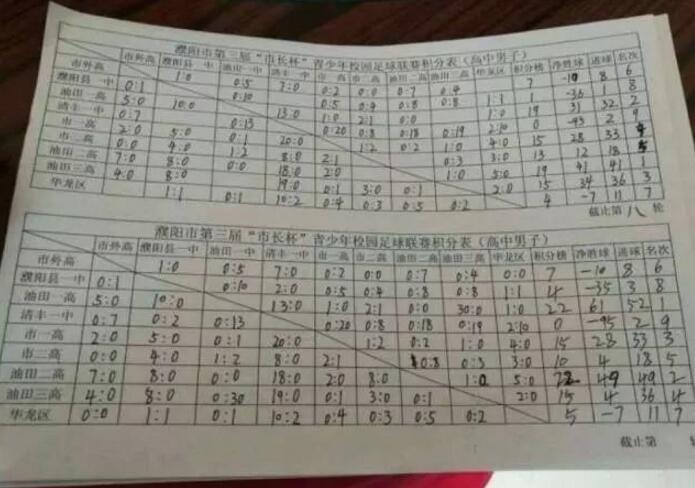 濮阳市第三届“市长杯”青少年校园足球联赛积分表（高中男子）
市外高 濮阳县一中 油田一高 清丰一中 市一高 市二高 油田二高 油田三高 华龙区 积分榜 净胜球 进球 名次
市外高 1:0 0:5 7:0 0:2 0:0 0:7 0:4 7 -10 8 6
濮阳县一中 0:1 0:10 0:5 0:4 0:8 0:8 1:1 1 -36 1 8
油田一高 5:0 10:0 13:0 1:0 2:1 0:0 1:0 19 31 32 2
清丰一中 0:7 0:13 0:20 0:8 0:18 0:19 2:10 0 -93 2 9
市一高 2:0 5:0 0:1 20:0 1:2 0:2 1:0 4:0 15 28 33
市二高 0:0 4:0 1:2 8:0 2:1 0:3 3:0 13 12 18
油田二高 7:0 8:0 0:0 18:0 2:0 1:0 5:0 19 41 41 1
油田三高 4:0 8:0 19:0 0:1 3:0 0:1 2:0 15 34 36 3
华龙区 1:1 0:1 10:2 0:4 0:3 0:5 0:2 4 -7 11 7
截止第八轮
濮阳市第三届“市长杯”青少年校园足球联赛积分表（高中男子）
市外高 濮阳县一中 油田一高 清丰一中 市一高 市二高 油田二高 油田三高 华龙区 积分榜 净胜球 进球 名次
市外高 1:0 0:5 7:0 0:2 0:0 0:7 0:4 0:0 7 -10 8 6
濮阳县一中 0:1 0:10 2:0 0:5 0:4 0:8 0:8 1:1 4 -35 3 8
油田一高 5:0 10:0 13:0 1:0 2:1 0:0 30:0 1:0 22 61 52 1
清丰一中 0:7 0:2 0:13 0:20 0:8 0:18 0:19 2:10 0 -95 2 9
市一高 2:0 5:0 0:1 20:0 1:2 0:2 1:0 4:0 15 28 33 3
市二高 0:0 4:0 1:2 8:0 2:1 0:8 0:3 3:0 10 4 18 5
油田二高 7:0 8:0 0:0 18:0 2:0 8:0 1:0 5:0 22 49 49 2
油田三高 4:0 8:0 0:30 19:0 0:1 3:0 0:1 2:0 15 4 36 4
华龙区 0:0 1:1 0:1 10:2 0:4 0:3 0:5 0:2 5 -7 11 7
截止第